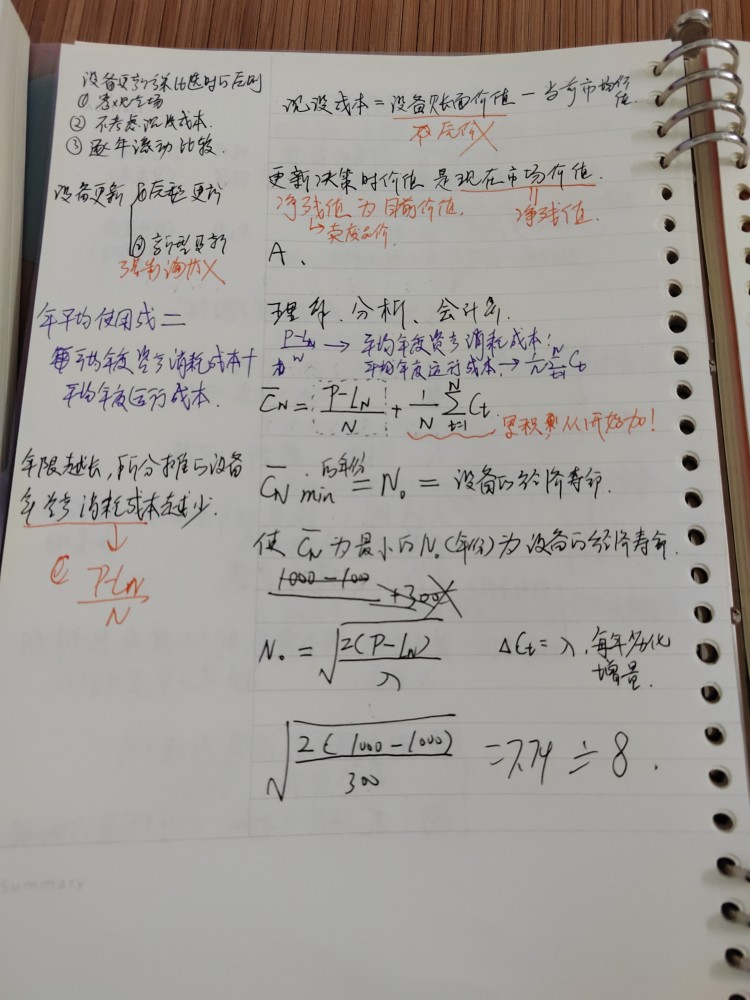 设备更新方案比选时的原则
① 客观立场
② 不考虑沉没成本.
③ 逐年滚动比较.
设备更新 ①原型更新
②新型更新
强制淘汰X
年平均使用成二
平均年度资产消耗成本十
平均年度运行成本.
年限越长，所分摊的设备
年资产消耗成本越少.
P-LN
N
沉没成本=设备账面价值-当前市场价值.
原价X
更新决策时价值是现在市场价值.
净残值为目前价值. 净残值.
→卖废品价
A.
理解、分析、会计算.
P-LN/N → 平均年度资产消耗成本!
平均年度运行成本. → 1/N N∑t=1 Ct
C̅N = P-LN/N + 1/N N∑t=1 Ct.
累积 从1开始加!
C̅N min 的年份 = N。= 设备的经济寿命.
使 C̅N 为最小的N。(年份)为设备的经济寿命.
1000-100
+300X
N。= √2(P-LN)/λ ΔCt=λ,每年劣化
增量.
√2(1000-1000)/300 =7.74 ≐ 8.
Summary